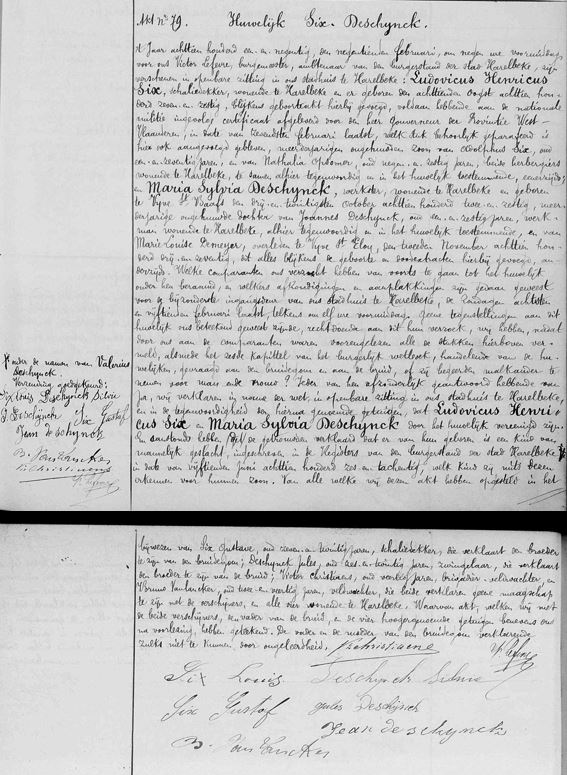 Akt nº 79. Huwelijk Six-Deschynck.
't Jaar achttien honderd een-en-negentig, den negentienden februari, om negen ure voormiddag,
voor ons Victor Lefevre, burgemeester, ambtenaar van den burgerstand der stad Harelbeke, zijn
verschenen in openbare zitting in ons stadhuis te Harelbeke: Ludovicus Henricus
Six, schaliedekker, wonende te Harelbeke en er geboren den achttienden Oogst achttien hon-
derd zeven-en-zestig, blijkens geboorteakt hierbij gevoegd, voldaan hebbende aan de nationale
militie ingevolge certificaat afgeleverd door den heer Gouverneur der Provintie West-
Vlaanderen, in date van februari laatst, welk stuk behoorlijk geparafeerd is
hier ook aangevoegd gebleven, meerderjarigen ongehuwden zoon van Adolphus Six, oud
een-en-zeventig jaren, en van Nathalia Opsomer, oud negen-en-zestig jaren, beide herbergiers
wonende te Harelbeke, te samen alhier tegenwoordig en in het huwelijk toestemmende, eenerzijds;
en Maria Sylvia Deschynck, werkster, wonende te Harelbeke en geboren
te Vyve St Baafs den drij-en-twintigsten October achttien honderd twee-en-zestig, meer-
derjarige ongehuwde dochter van Joannes Deschynck, oud een-en-zestig jaren, werk-
man wonende te Harelbeke, alhier tegenwoordig en in het huwelijk toestemmende, en van
Marie-Louise Demeyer, overleden te Vyve St Eloy, den tweeden November achttien hon-
derd drij-en-zeventig, dit alles blijkens de geboorte en doodextrakten hierbij gevoegd, an-
derzijds. Welke comparanten ons verzocht hebben van voorts te gaan tot het huwelijk
onder hen beraamd, en welkers afkondigingen en aanplakkingen zijn gedaan geweest
voor de bijzonderste ingangdeur van ons stadhuis te Harelbeke, de Zondagen achtsten
en vijftienden februari laatst, telkens om elf ure voormiddag. Geene tegenstellingen aan dit
huwelijk ons beteekend geweest zijnde, rechtdoende aan dit hun verzoek, wij hebben, nadat
door ons aan de comparanten waren voorengelezen alle de stukken hierboven ver-
meld, alsmede het zesde kapittel van het burgerlijk wetboek, handelende van de hu-
welijken, gevraagd aan den bruidegom en aan de bruid, of zij begeerden malkander te
nemen voor man ende vrouw? Ieder van hen afzonderlijk geantwoord hebbende van
ja, wij verklaren in name der wet, in openbare zitting in ons stadhuis te Harelbeke,
en in de tegenwoordigheid den hierna genoemde getuigen, dat Ludovicus Henri-
cus Six en Maria Sylvia Deschynck door het huwelijk vereenigd zijn.
En aanstonds hebben de gehuwden verklaard dat er van hun geboren is een kind van
mannelijk geslacht, ingeschreven in de Registers van den burgerstand der stad Harelbeke
in date van vijftienden Juni achttien honderd zes-en-tachentig, welk kind zij mits dezen
erkennen voor hunnen zoon. Van alle welke wij dezen akt hebben opgesteld in het
onder de namen van Valerius
Deschynck.
Verzending goedgekeurd:
Six Louis Deschynck Silvie
J. Deschynck Six Gustaf
Jean deschynck
B. Van Eencker
V. Christiaens
V. Lefevre
bijwezen van Six Gustave, oud zeven-en-twintig jaren, schaliedekker, die verklaart den broeder
te zijn van den bruidegom; Deschynck Jules, oud zes-en-twintig jaren, zwingelaar, die verklaart
den broeder te zijn van de bruid; Victor Christiaens, oud veertig jaren, brigadier-veldwachter, en
Bruno oud twee-en-veertig jaren, veldwachter, die beide verklaren geene maagschap
te zijn met de verschijners, en alle vier wonende te Harelbeke. Waarvan akt, welken wij met
de beide verschijners, den vader van de bruid, en de vier hoogergenoemde getuigen benevens ons
na voorlezing, hebben geteekend. De vader en de moeder van den bruidegom verklarende
zulks niet te kunnen, door ongeleerdheid. V. Christiaens V. Lefevre
Six Louis. Deschynck Silvie
Six Gustaf jules Deschynck
Jean deschynck
B. Van Eencker